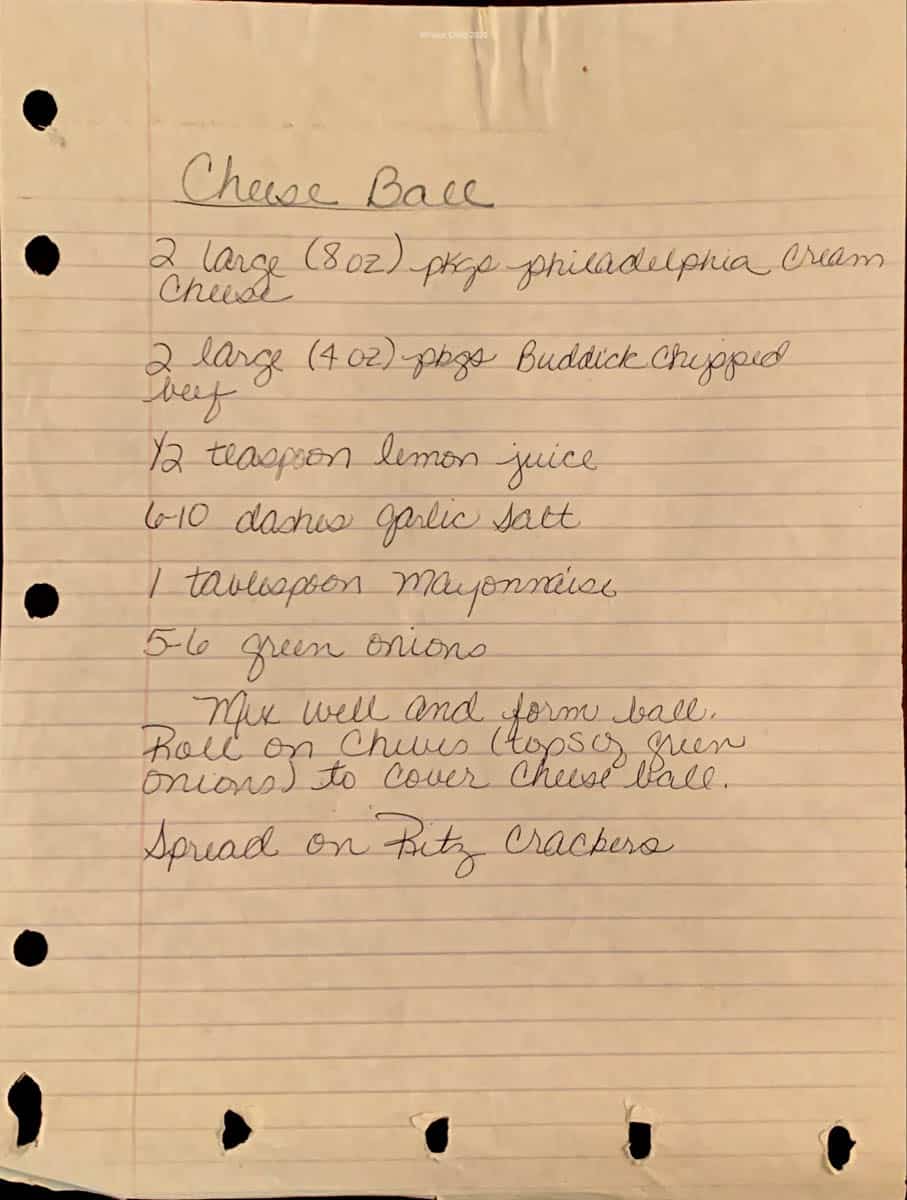 Cheese Ball
2 large (8 oz) pkgs philadelphia Cream
Cheese
2 large (4 oz) pkgs Buddick Chipped
beef
1/2 teaspoon lemon juice
6-10 dashes garlic Salt
1 tablespoon Mayonnaise
5-6 green onions
Mix well and form ball.
Roll on Chives (tops of green
onions) to cover Cheese ball.
Spread on Ritz Crackers